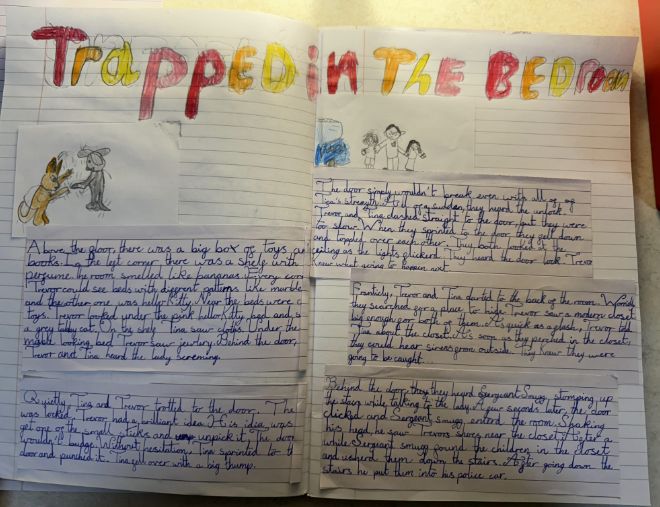 Trapped in The Bedroom
Above the floor, there was a big box of toys and
books. In the left corner, there was a shelf with
perfume. The room smelled like bananas. Every
Trevor could see beds with different patterns like marble
and the other one was hello Kitty. Near the beds were
toys. Trevor looked under the pink hello Kitty bed and
a grey tabby cat. On the shelf Tina saw Under the
looking bed Trevor saw jewlery. Behind the door,
Trevor and Tina heard the lady screming.
Quietly, Tina and Trevor trotted to the door. The
was locked. Trevor had a brilliant idea. His idea was
get one of the small and unpick it. The door
wouldn't budge. Without hesitation, Tina sprinted to th
door and punched it. Tina fell over with a big thump.
The door simply wouldn't break even with all of
Tina's strength. All of a sudden, they heard the
Trevor and Tina dashed straight to the door, but they were
too slow. When they sprinted to the door, they fell down
and toppled over each other. They both looked at the
ceiling as the lights flickerd. They heard the door lock. Trevor
knew what was going to happen next.
Franticly, Trevor and Tina darted to the back of the room.
they searched for a place to hide. Trevor saw a modern closet
big enough for both of them. As quick as a flash, Trevor told
Tina about the closet. As soon as they perched in the closet,
they could hear sirens from outside. They knew they were
going to be caught.
Behind the door, they they heard Sergeant Smug, stomping up
the steps while talking to the lady. A few seconds later, the door
clicked and Sergeant smugg enterd the room. Shaking
his head, he saw Trevors shoes near the closet. After a
while Sergeant smugg found the children in the closet
and usherd them down the stairs. After going down the
stairs he put them into his police car.